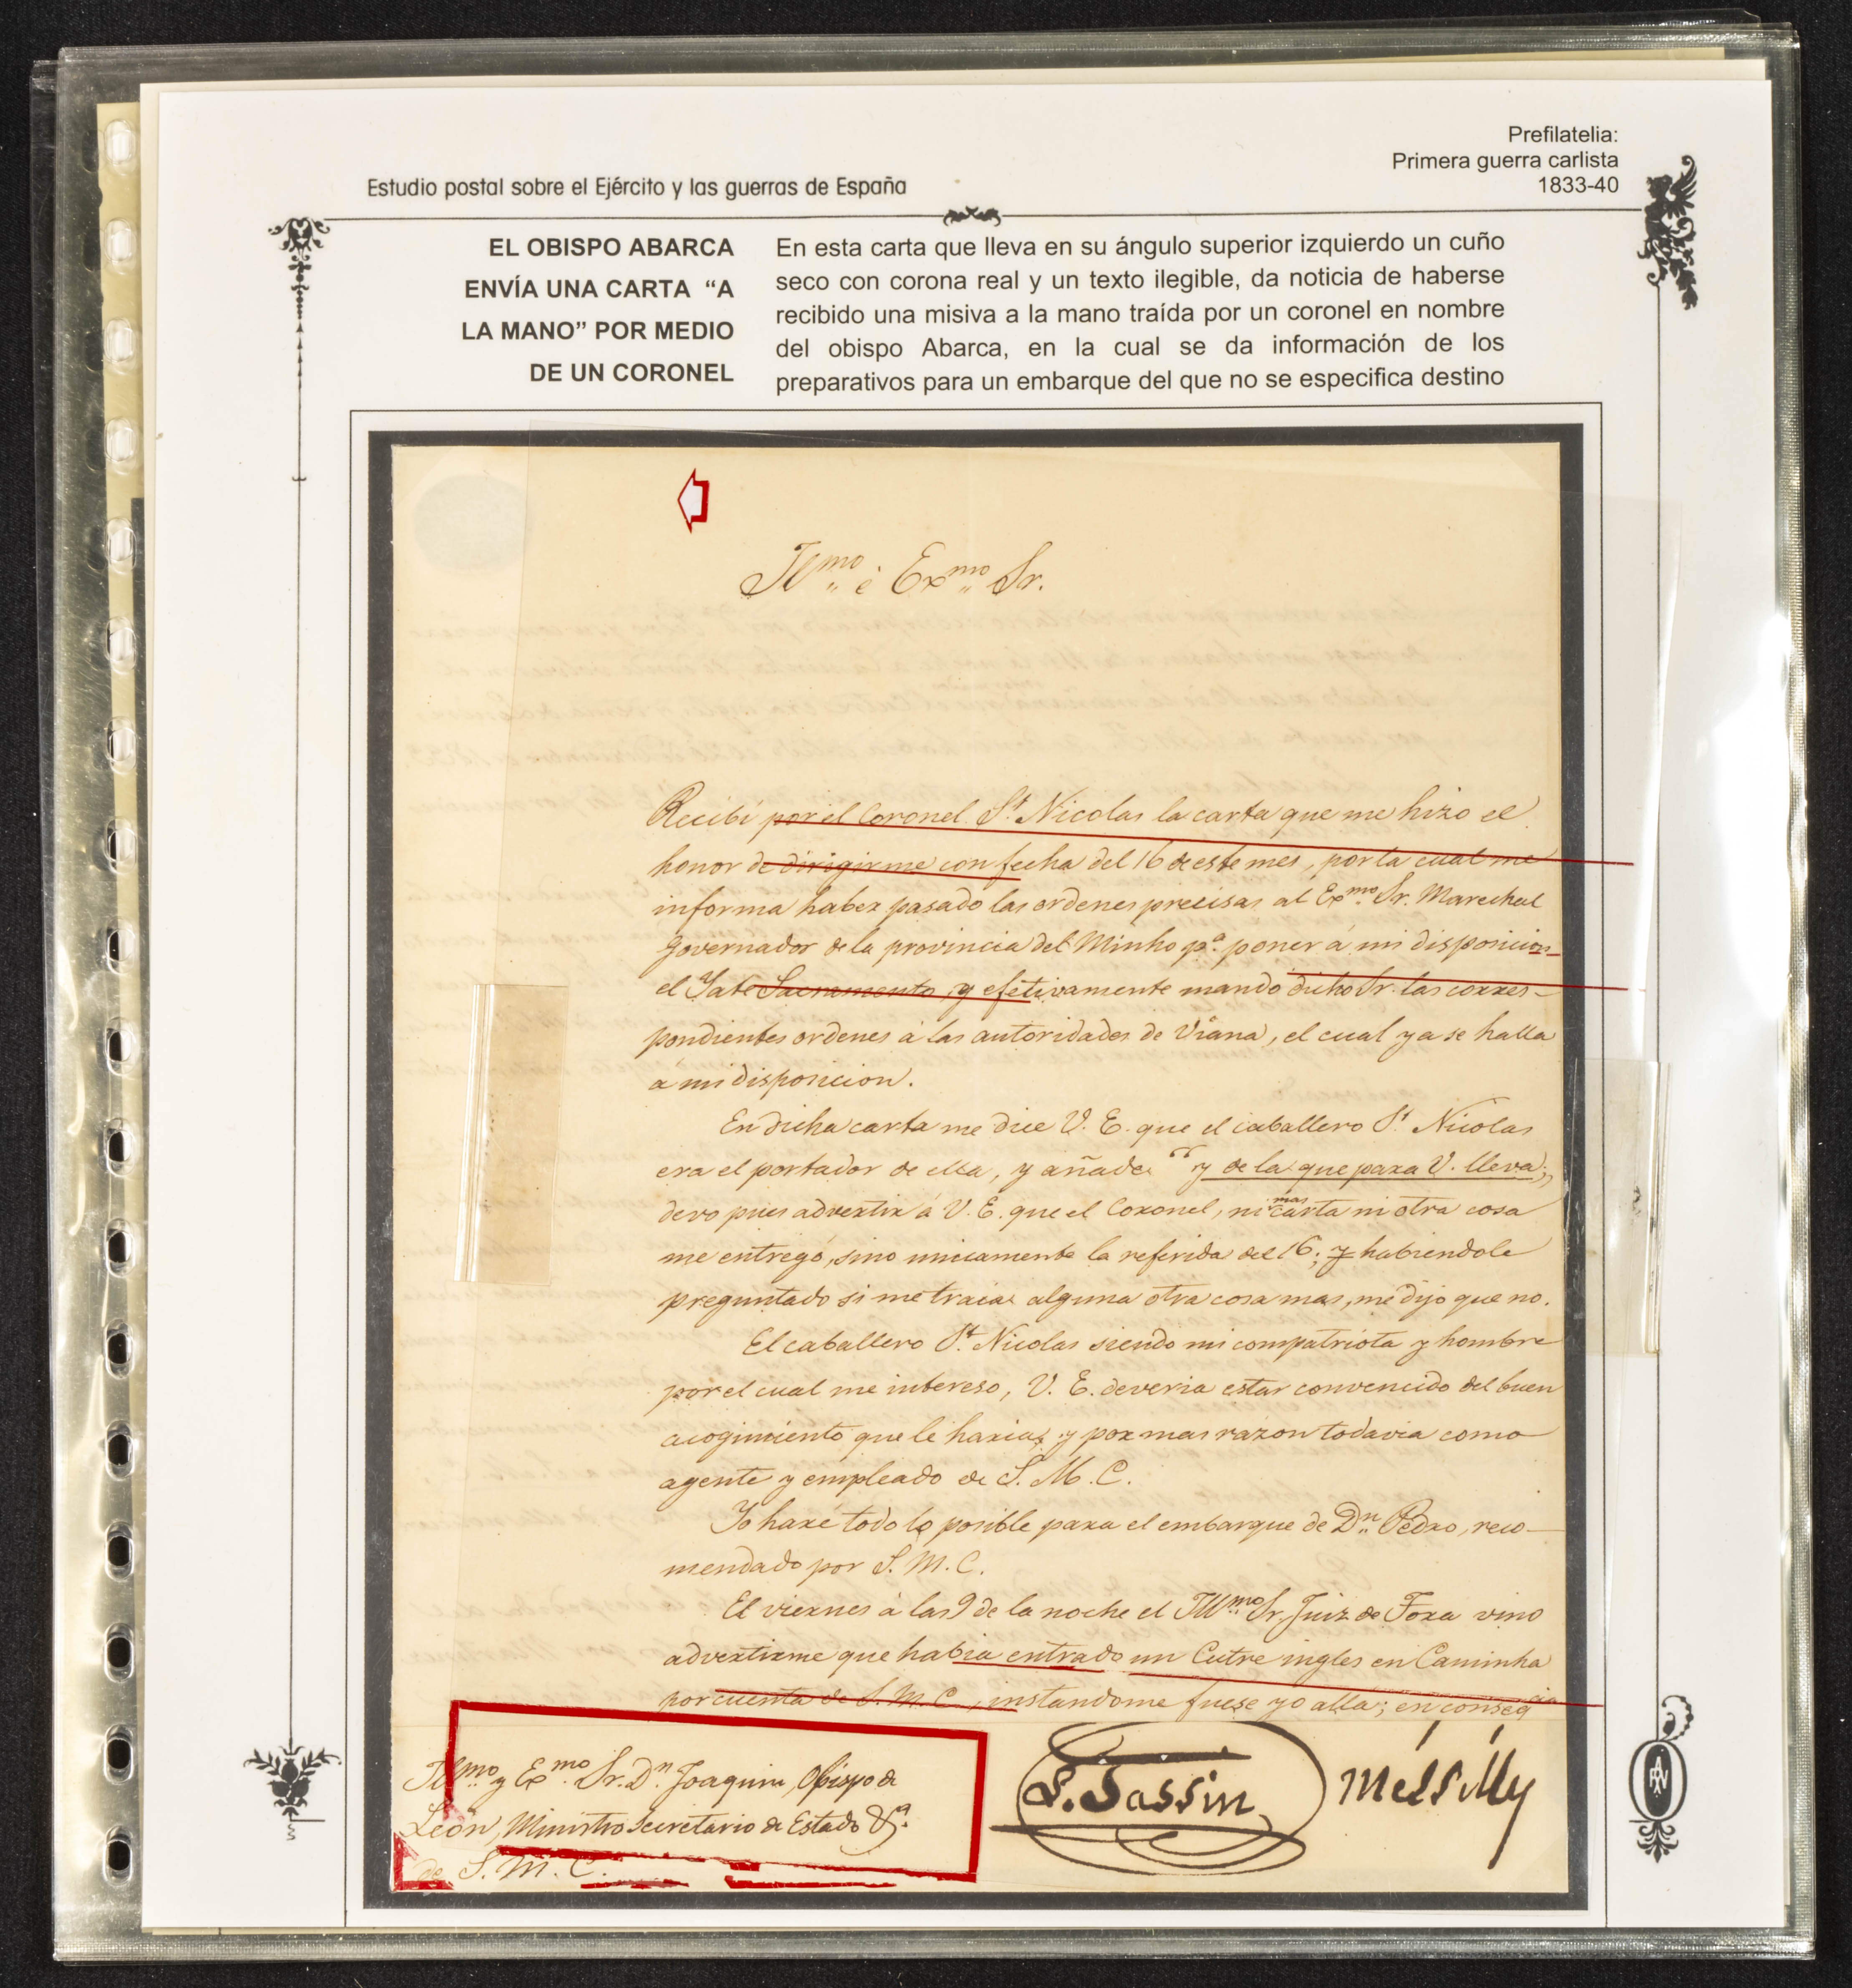 Prefilatelia:
Primera guerra carlista
1833-40
Estudio postal sobre el Ejército y las guerras de España
EL OBISPO ABARCA
ENVÍA UNA CARTA “A
LA MANO” POR MEDIO
DE UN CORONEL
En esta carta que lleva en su ángulo superior izquierdo un cuño
seco con corona real y un texto ilegible, da noticia de haberse
recibido una misiva a la mano traída por un coronel en nombre
del obispo Abarca, en la cual se da información de los
preparativos para un embarque del que no se especifica destino
Yllmo é Exmo Sr.
Recibí por el Coronel St Nicolas la carta que me hizo el
honor de dirigirme con fecha del 16 de este mes, por la cual me
informa haber pasado las ordenes precisas al Exmo Sr. Marechal
Governador de la provincia del Minho pa. poner á mi disposicion
el Yate Sacramento, y efetivamente mandó dicho Sr. las corres-
pondientes ordenes á las autoridades de Viana, el cual ya se halla
á mi disposicion.
En dicha carta me dice V. E. que el caballero St Nicolas
era el portador de ella, y añade “y de la que para V. lleva„
devo pues advertir á V. E. que el Coronel, ni mas carta ni otra cosa
me entregó, sino unicamente la referida del 16; y habiendole
preguntado si me traia alguna otra cosa mas, me dijo que no.
El caballero St. Nicolas siendo mi compatriota y hombre
por el cual me intereso, V. E. deveria estar convencido del buen
acogimiento que le haria, y por mas razon todavia como
agente y empleado de S. M. C.
Yo haré todo lo posible para el embarque de Dn Pedro, reco-
mendado por S. M. C.
El viernes á las 9 de la noche el Yllmo Sr. Juiz de Fora vino
advertirme que habia entrado un Cutre ingles en Caminha
por cuenta de S. M. C., instandome fuese yo allá; en conseqcia
Yllmo y Exmo Sr. Dn. Joaquin, Obispo de
León, Ministro Secretario de Estado &a.
de S. M. C.
S. Sassin